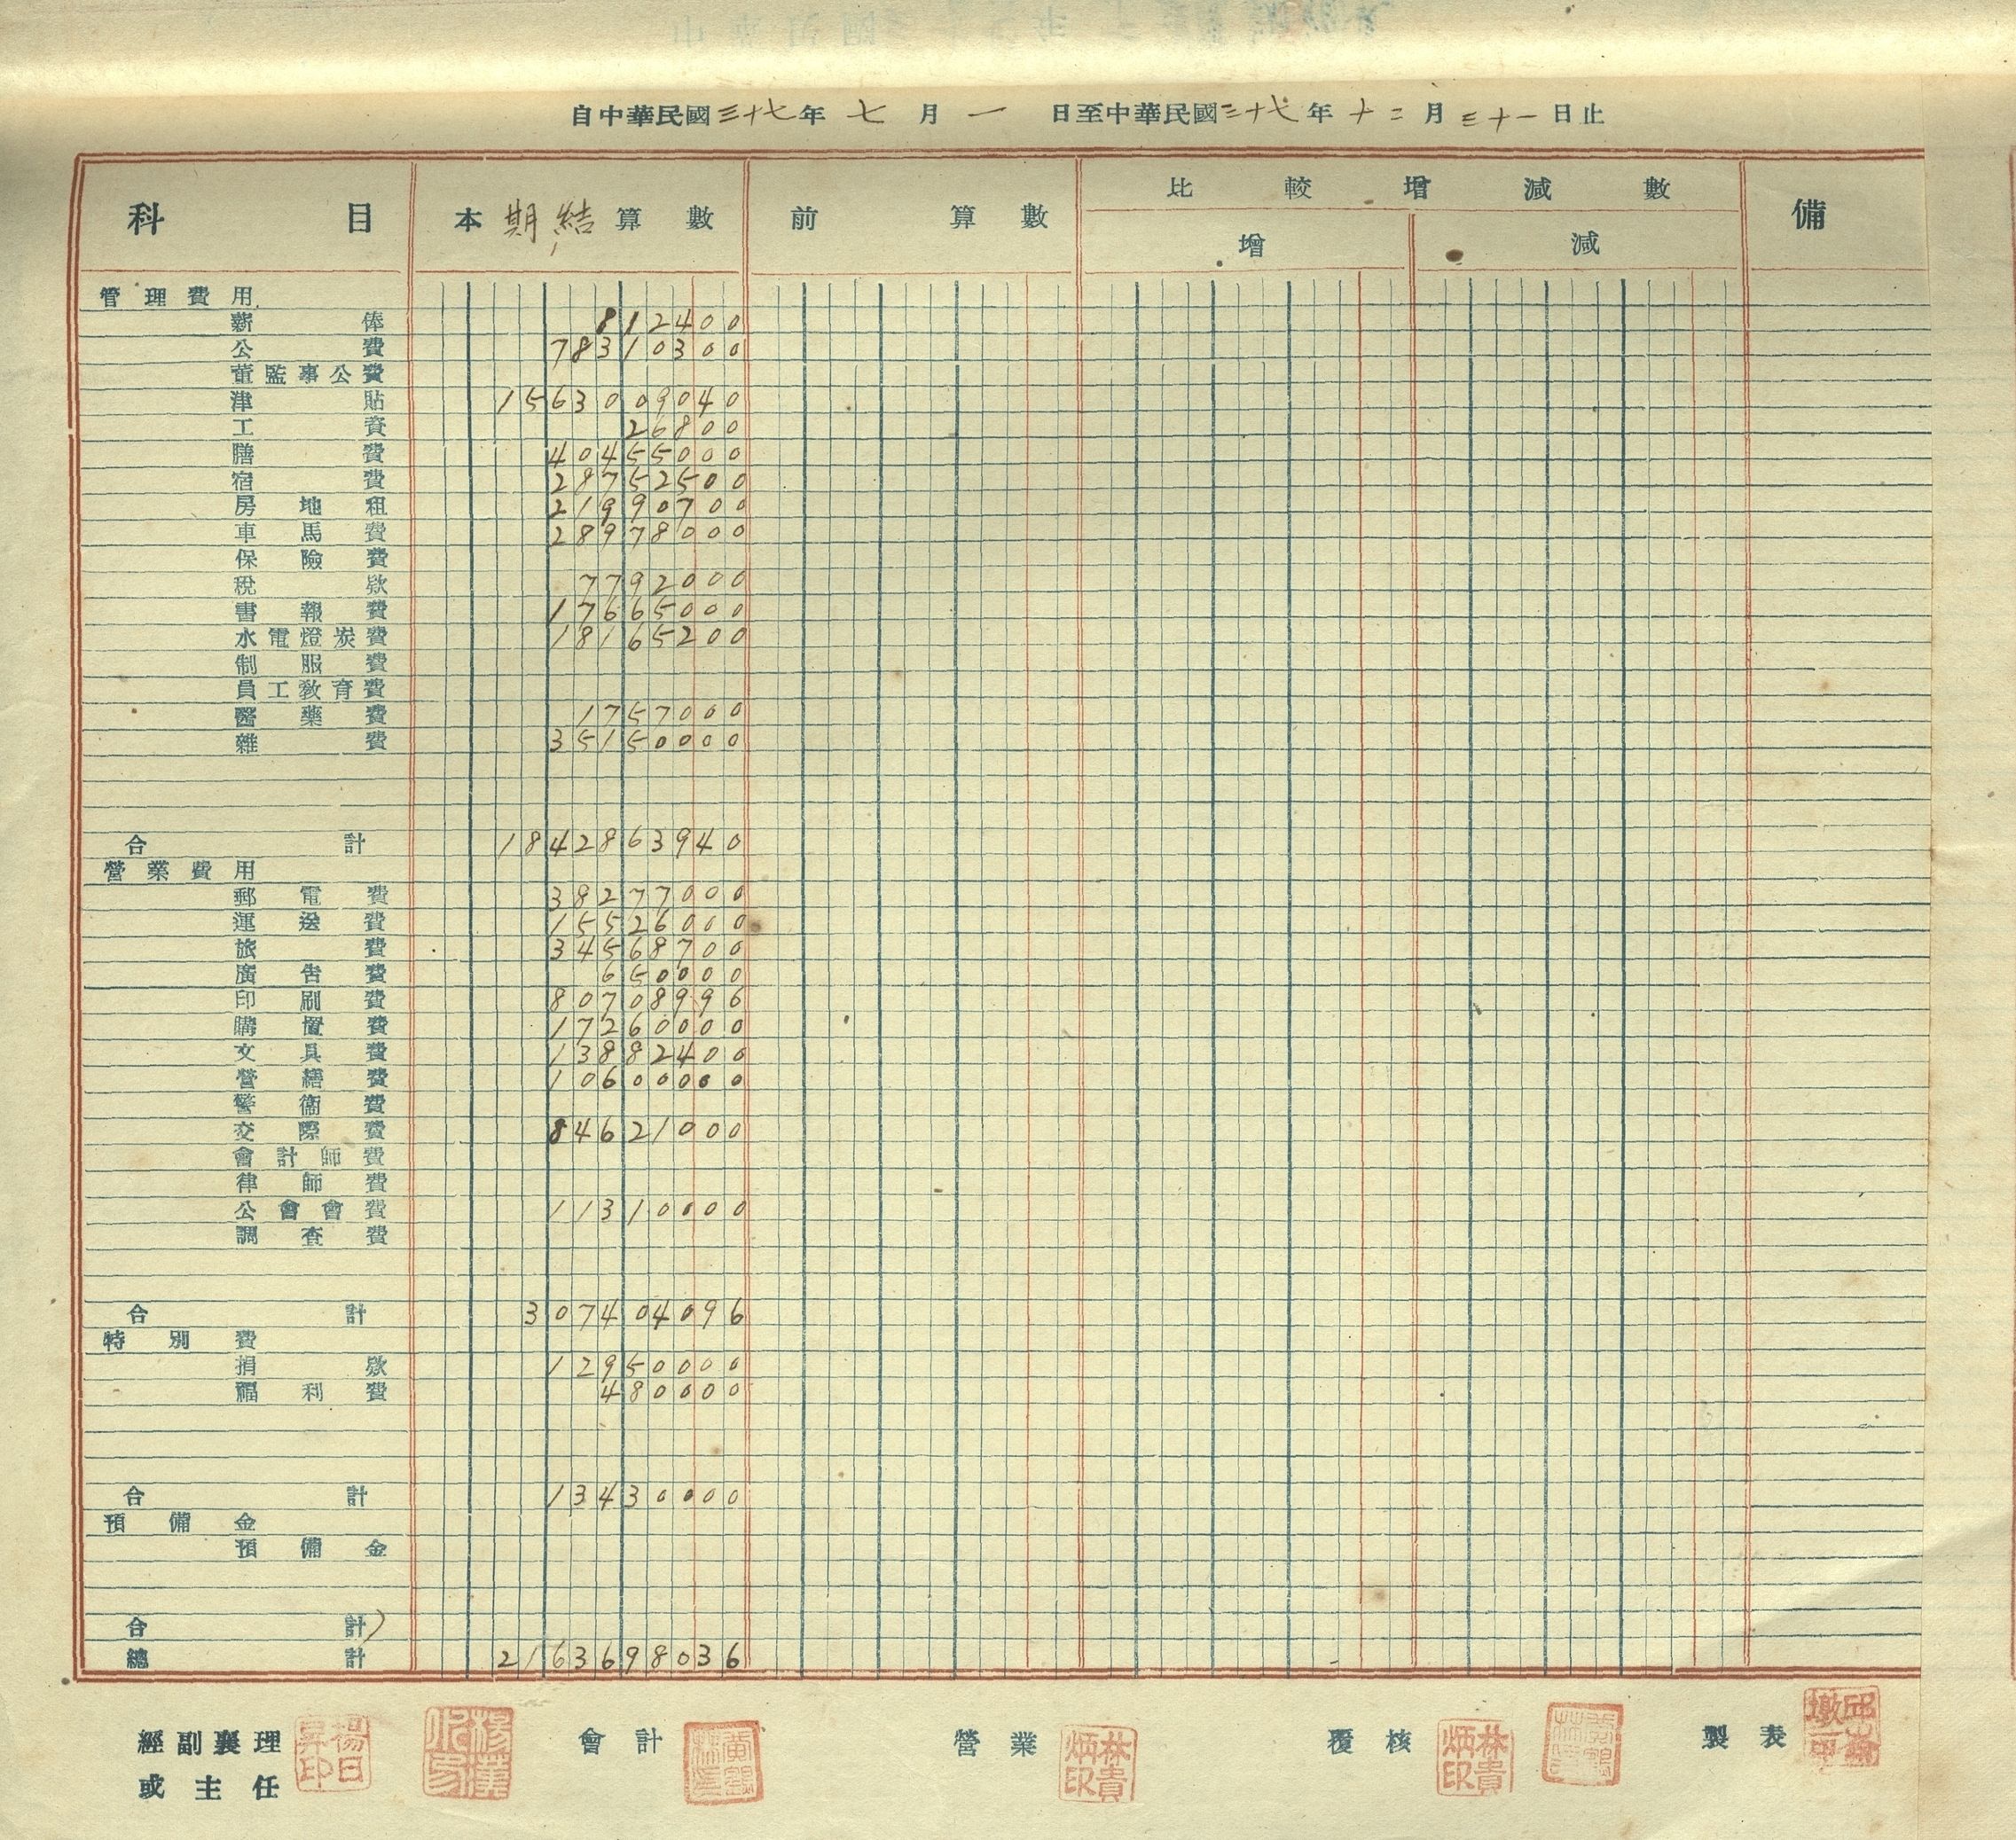 自中華民國三十七年七月一日至中華民國三十七年十二月三十一日止
科目 本期結算數 前算數 比較增減數 備
增 減
管理費用
薪俸 812400
公費 78310300
董監事公費
津貼 1563009040
工資 26800
膳費 40455000
宿費 28752500
房地租 21990700
車馬費 28978000
保險費
稅欵 7792000
書報費 17665000
水電燈炭費 18165200
制服費
員工教育費
醫藥費 1757000
雜費 35150000
合計 1842863940
營業費用
郵電費 38277000
運送費 15526000
旅費 34568700
廣告費 650000
印刷費 80708996
購置費 17260000
文具費 13882400
營繕費 10600000
警衞費
交際費 84621000
會計師費
律師費
公會會費 11310000
調查費
合計 307404096
特別費
捐欵 12950000
福利費 480000
合計 13430000
預備金
預備金
合計
總計 2163698036
經副襄理 會計 營業 覆核 製表
或主任
楊日昇印
林貴炳印
林貴炳印